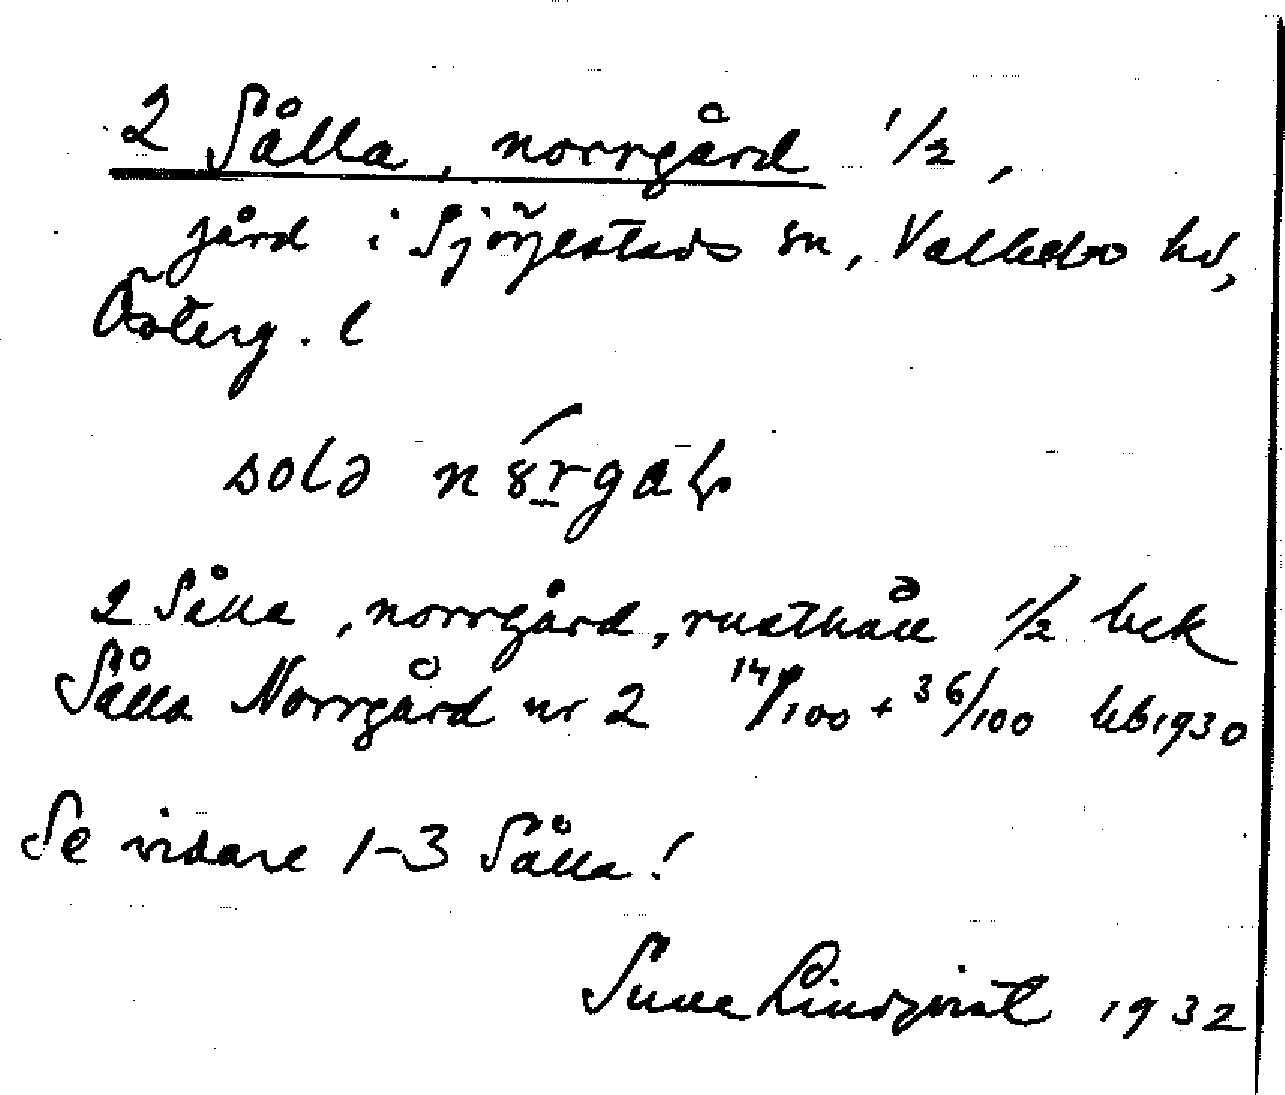 2 Sålla, norrgård 1/2,
gård i Sjögestads sn, Valkebo hd,
Österg. l
2 Sålla, norrgård, rusthåll 1/2 bck
Sålla Norrgård nr 2 14/100 + 36/100 kb 1930
Se vidare 1-3 Sålla!
Sune Lindqvist 1932